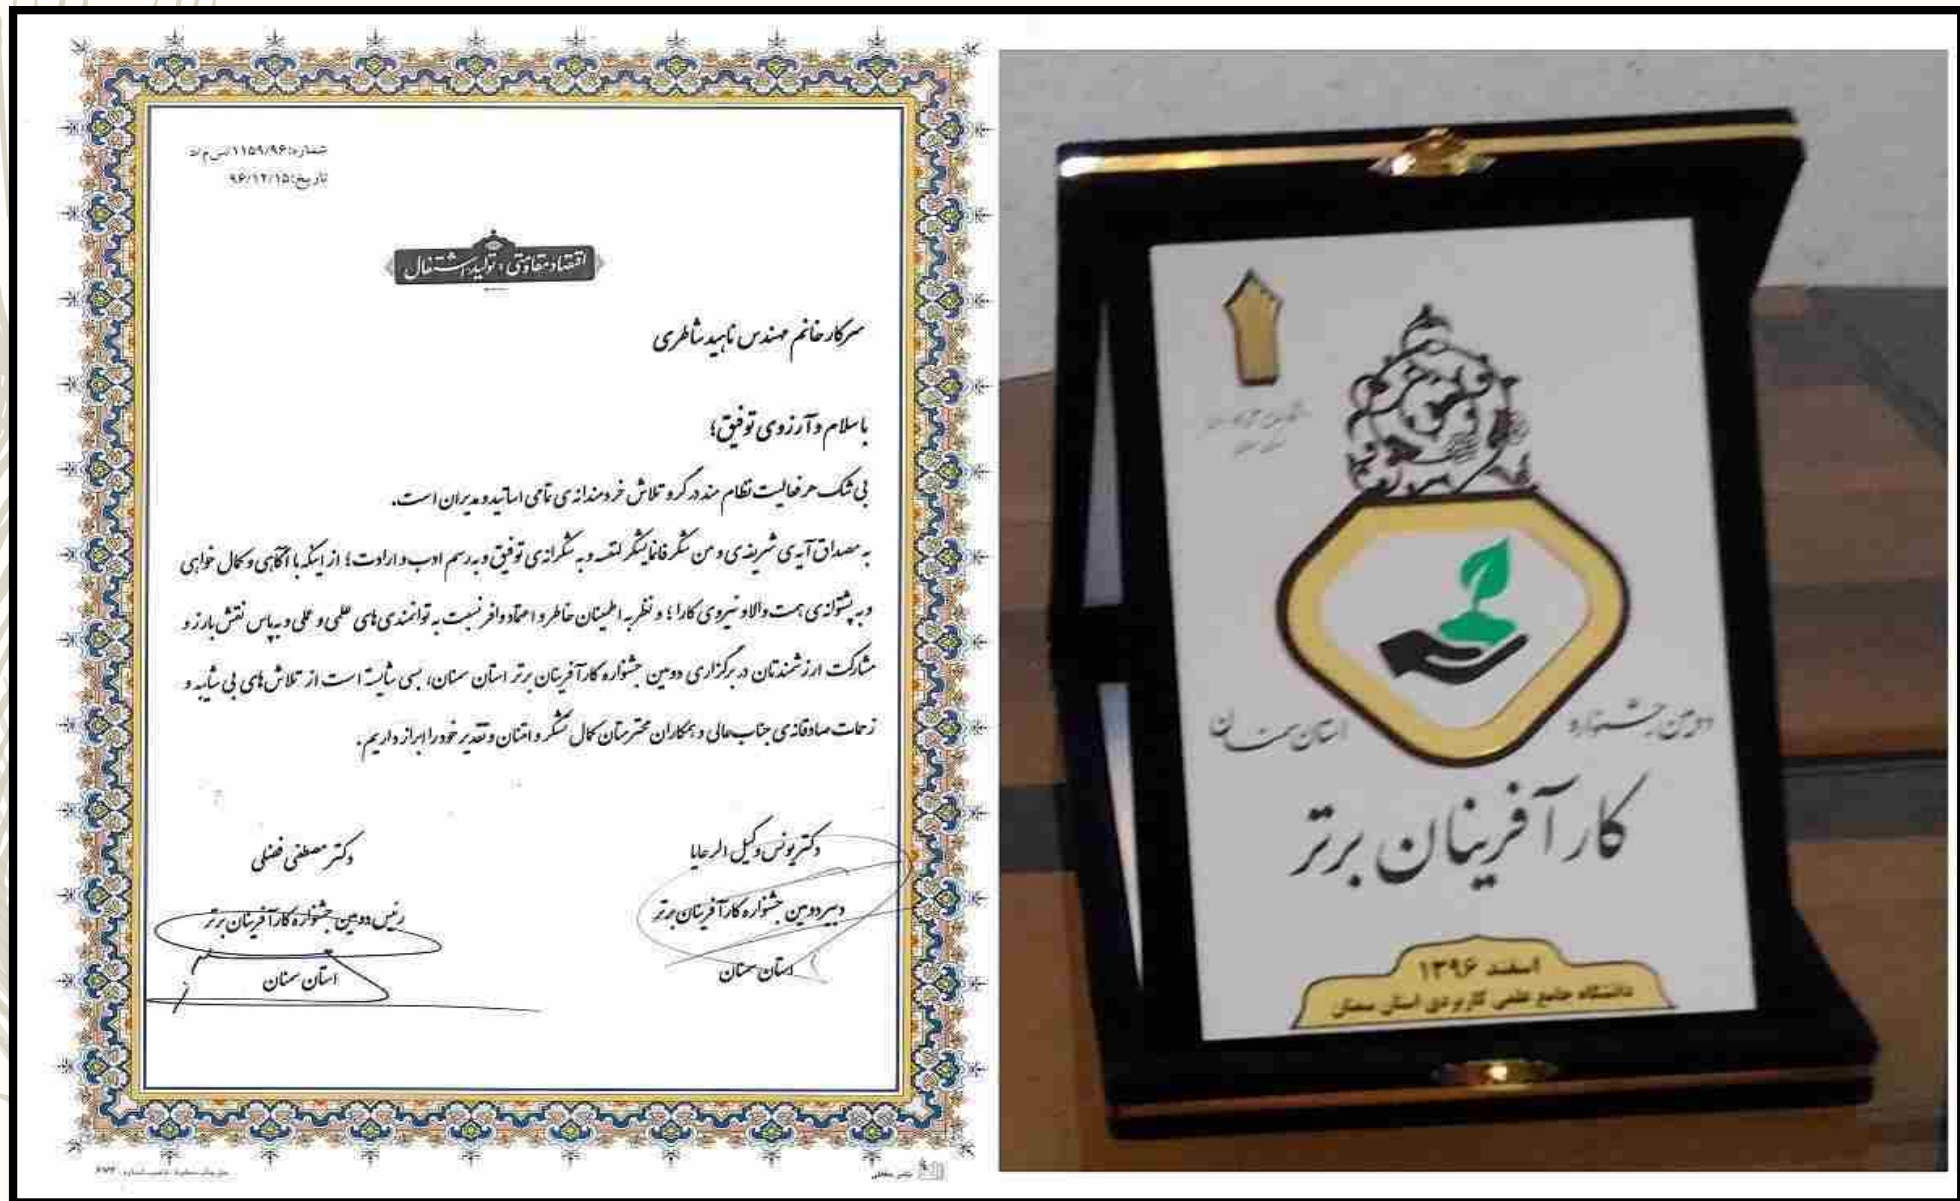 شماره: ۱۱۵۹/۹۶/س م ت
تاریخ: ۹۶/۱۲/۱۵
اقتصاد مقاومتی؛ تولید، اشتغال
سرکار خانم مهندس ناهید شاطری
با سلام و آرزوی توفیق؛
بی شک هر فعالیت نظام مند در گرو تلاش خردمندانه ی تمامی اساتید و مدیران است.
به مصداق آیه ی شریفه ی و من شکر فانما یشکر لنفسه و به شکرانه ی توفیق و به رسم ادب و ارادت؛ از اینکه با آگاهی و کمال خواهی
و به پشتوانه ی همت والا و نیروی کارا؛ و نظر به اطمینان خاطر و اعتماد وافر نسبت به توانمندی های علمی و عملی و به پاس نقش بارز و
مشارکت ارزشمندتان در برگزاری دومین جشنواره کارآفرینان برتر استان سمنان، بسی شایسته است از تلاش های بی شائبه و
زحمات صادقانه ی جناب عالی و همکاران محترمتان کمال تشکر و امتنان و تقدیر خود را ابراز داریم.
دکتر یونس وکیل الرعایا
دبیر دومین جشنواره کارآفرینان برتر
استان سمنان
دکتر مصطفی فضلی
رئیس دومین جشنواره کارآفرینان برتر
استان سمنان
دومین جشنواره
استان سمنان
کارآفرینان برتر
اسفند ۱۳۹۶
دانشگاه جامع علمی کاربردی استان سمنان